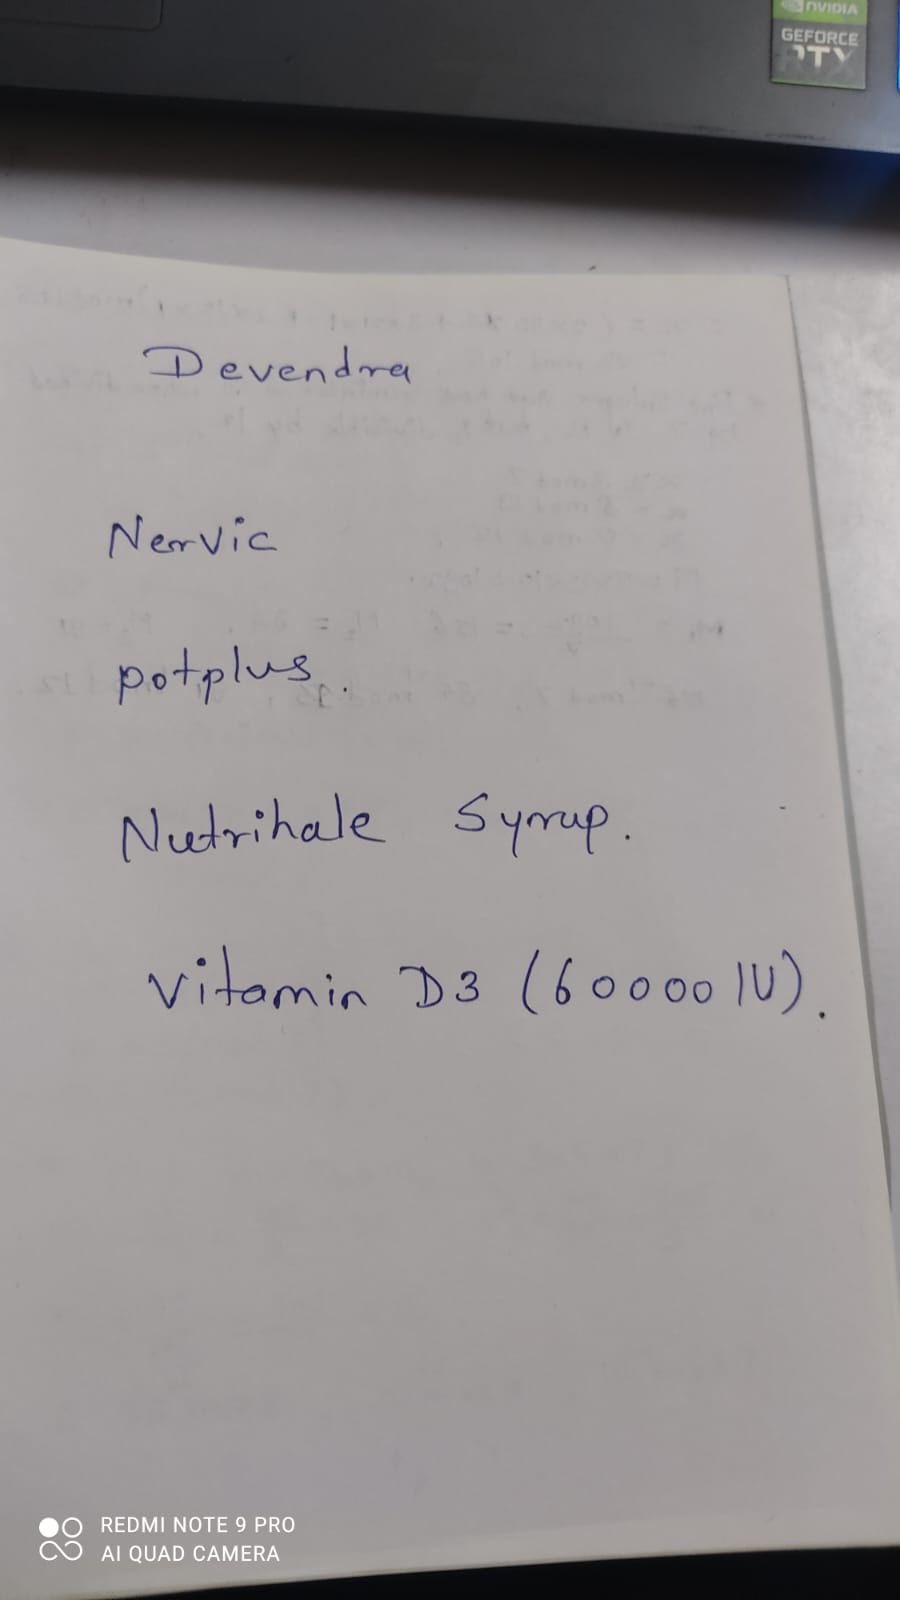 NVIDIA
GEFORCE
RTX
Devendra
Nervic
potplus.
Nutrihale Syrup.
Vitamin D3 (60000 IU).
REDMI NOTE 9 PRO
AI QUAD CAMERA